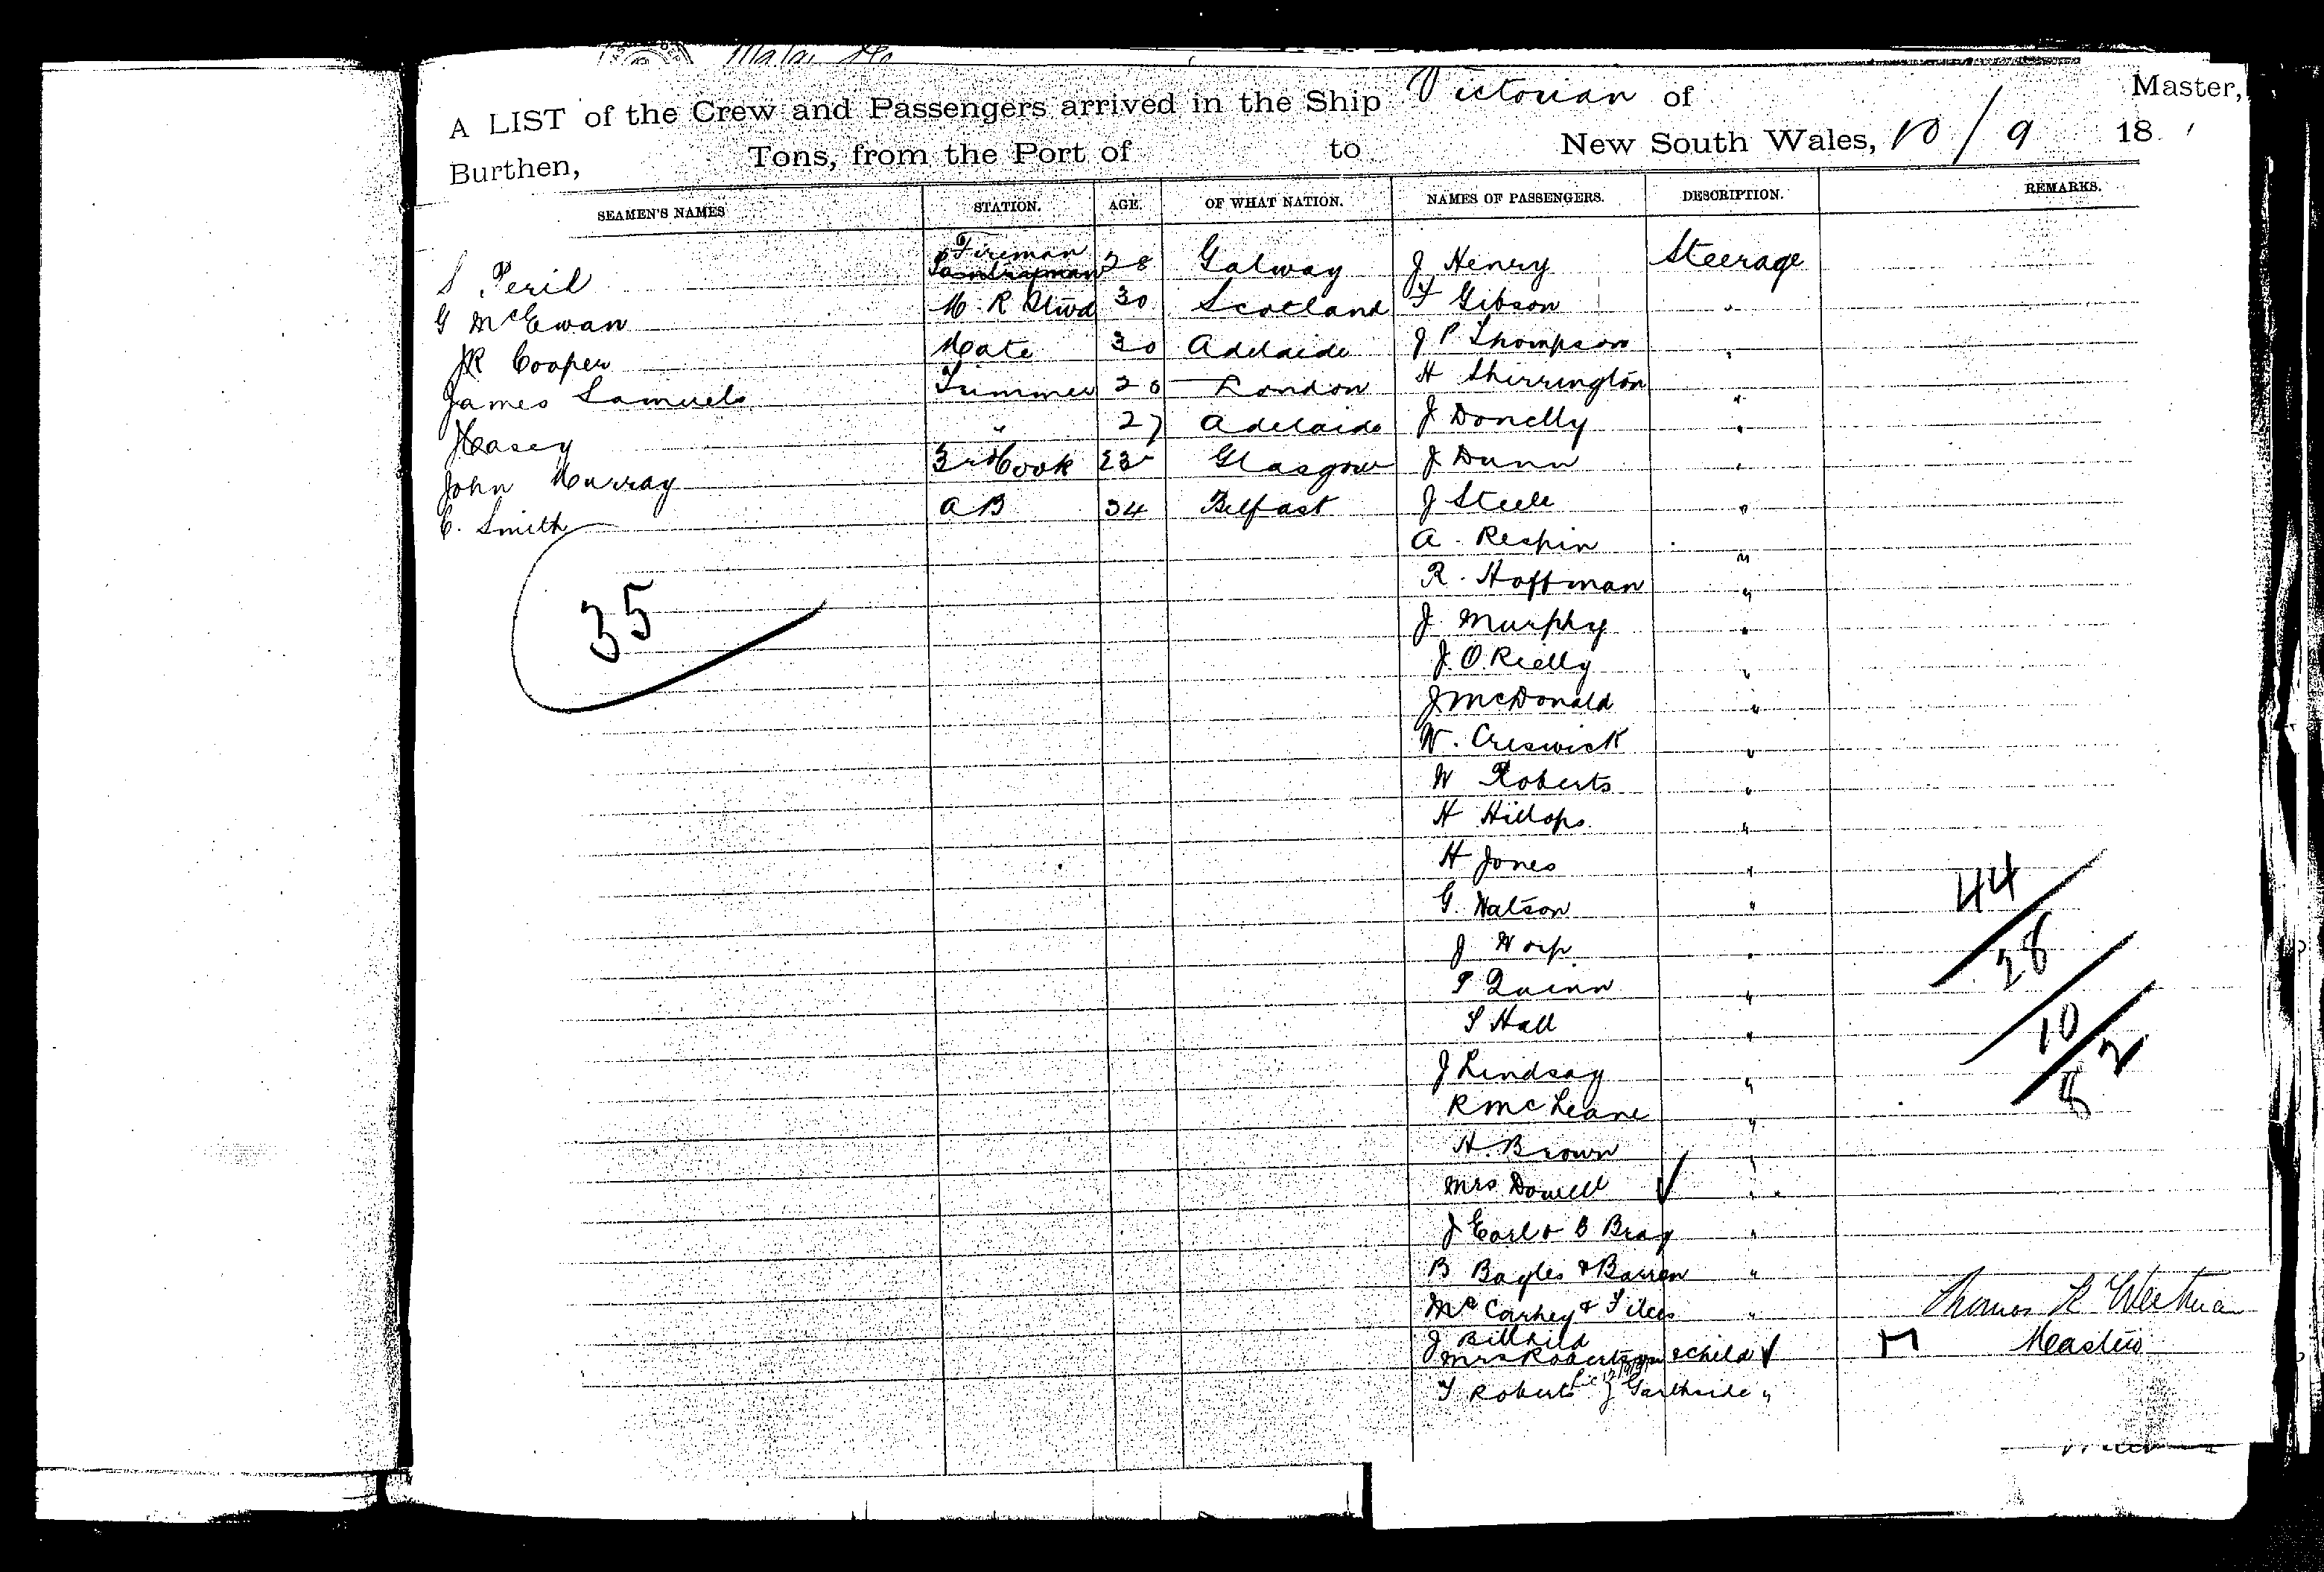 A LIST of the Crew and Passengers arrived in the Ship Victorian of Master,
Burthen, Tons, from the Port of to New South Wales, 10/9 18
SEAMEN'S NAMES STATION. AGE. OF WHAT NATION. NAMES OF PASSENGERS. DESCRIPTION. REMARKS.
S Peril Fireman 28 Galway J Henry Steerage
G McEwan M. R Stwd 30 Scotland F Gibson "
JR Cooper Mate 30 Adelaide J P Thompson "
James Samuels Trimmer 20 London H Sherrington "
J Casey " 27 Adelaide J Donelly "
John Murray 3rd Cook 23 Glasgow J Dunn "
C. Smith AB 34 Belfast J Steele "
A. Respin "
35
R. Hoffman "
J Murphy "
J. O. Rielly "
J McDonald "
W. Creswick "
W Roberts "
H Hillops "
H Jones "
44
G. Watson "
28
J Worp "
P Quinn "
10
S Hall "
2
J Lindsay "
8
R McLeane "
H. Brown "
Mrs Dowell ✓ "
J Earl & B Bray "
B Bayles & Barren "
McCarhey & "
Thomas R
J Billhild
Mrs Robertson & child ✓
Master
T Roberts J Garthside "